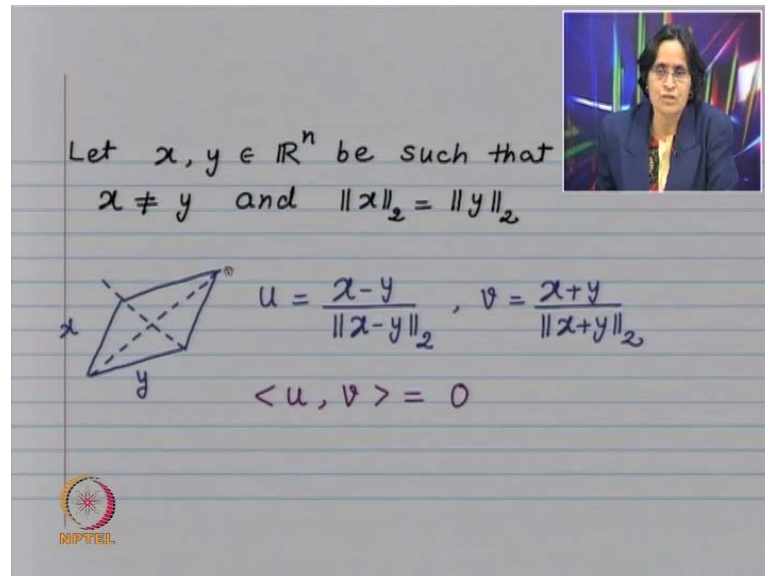 Let x, y ∈ ℝⁿ be such that
x ≠ y and ‖x‖₂ = ‖y‖₂
x
y
u = (x-y)/‖x-y‖₂ , v = (x+y)/‖x+y‖₂
<u, v> = 0
NPTEL